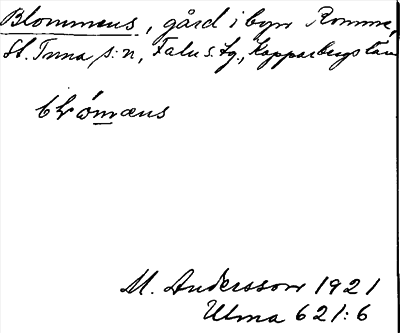 Blommens, gård i byn Romme,
St. Tuna s:n, Falu s. tg., Kopparbergs län
blómæns
M. Andersson 1921
Ulma 621:6